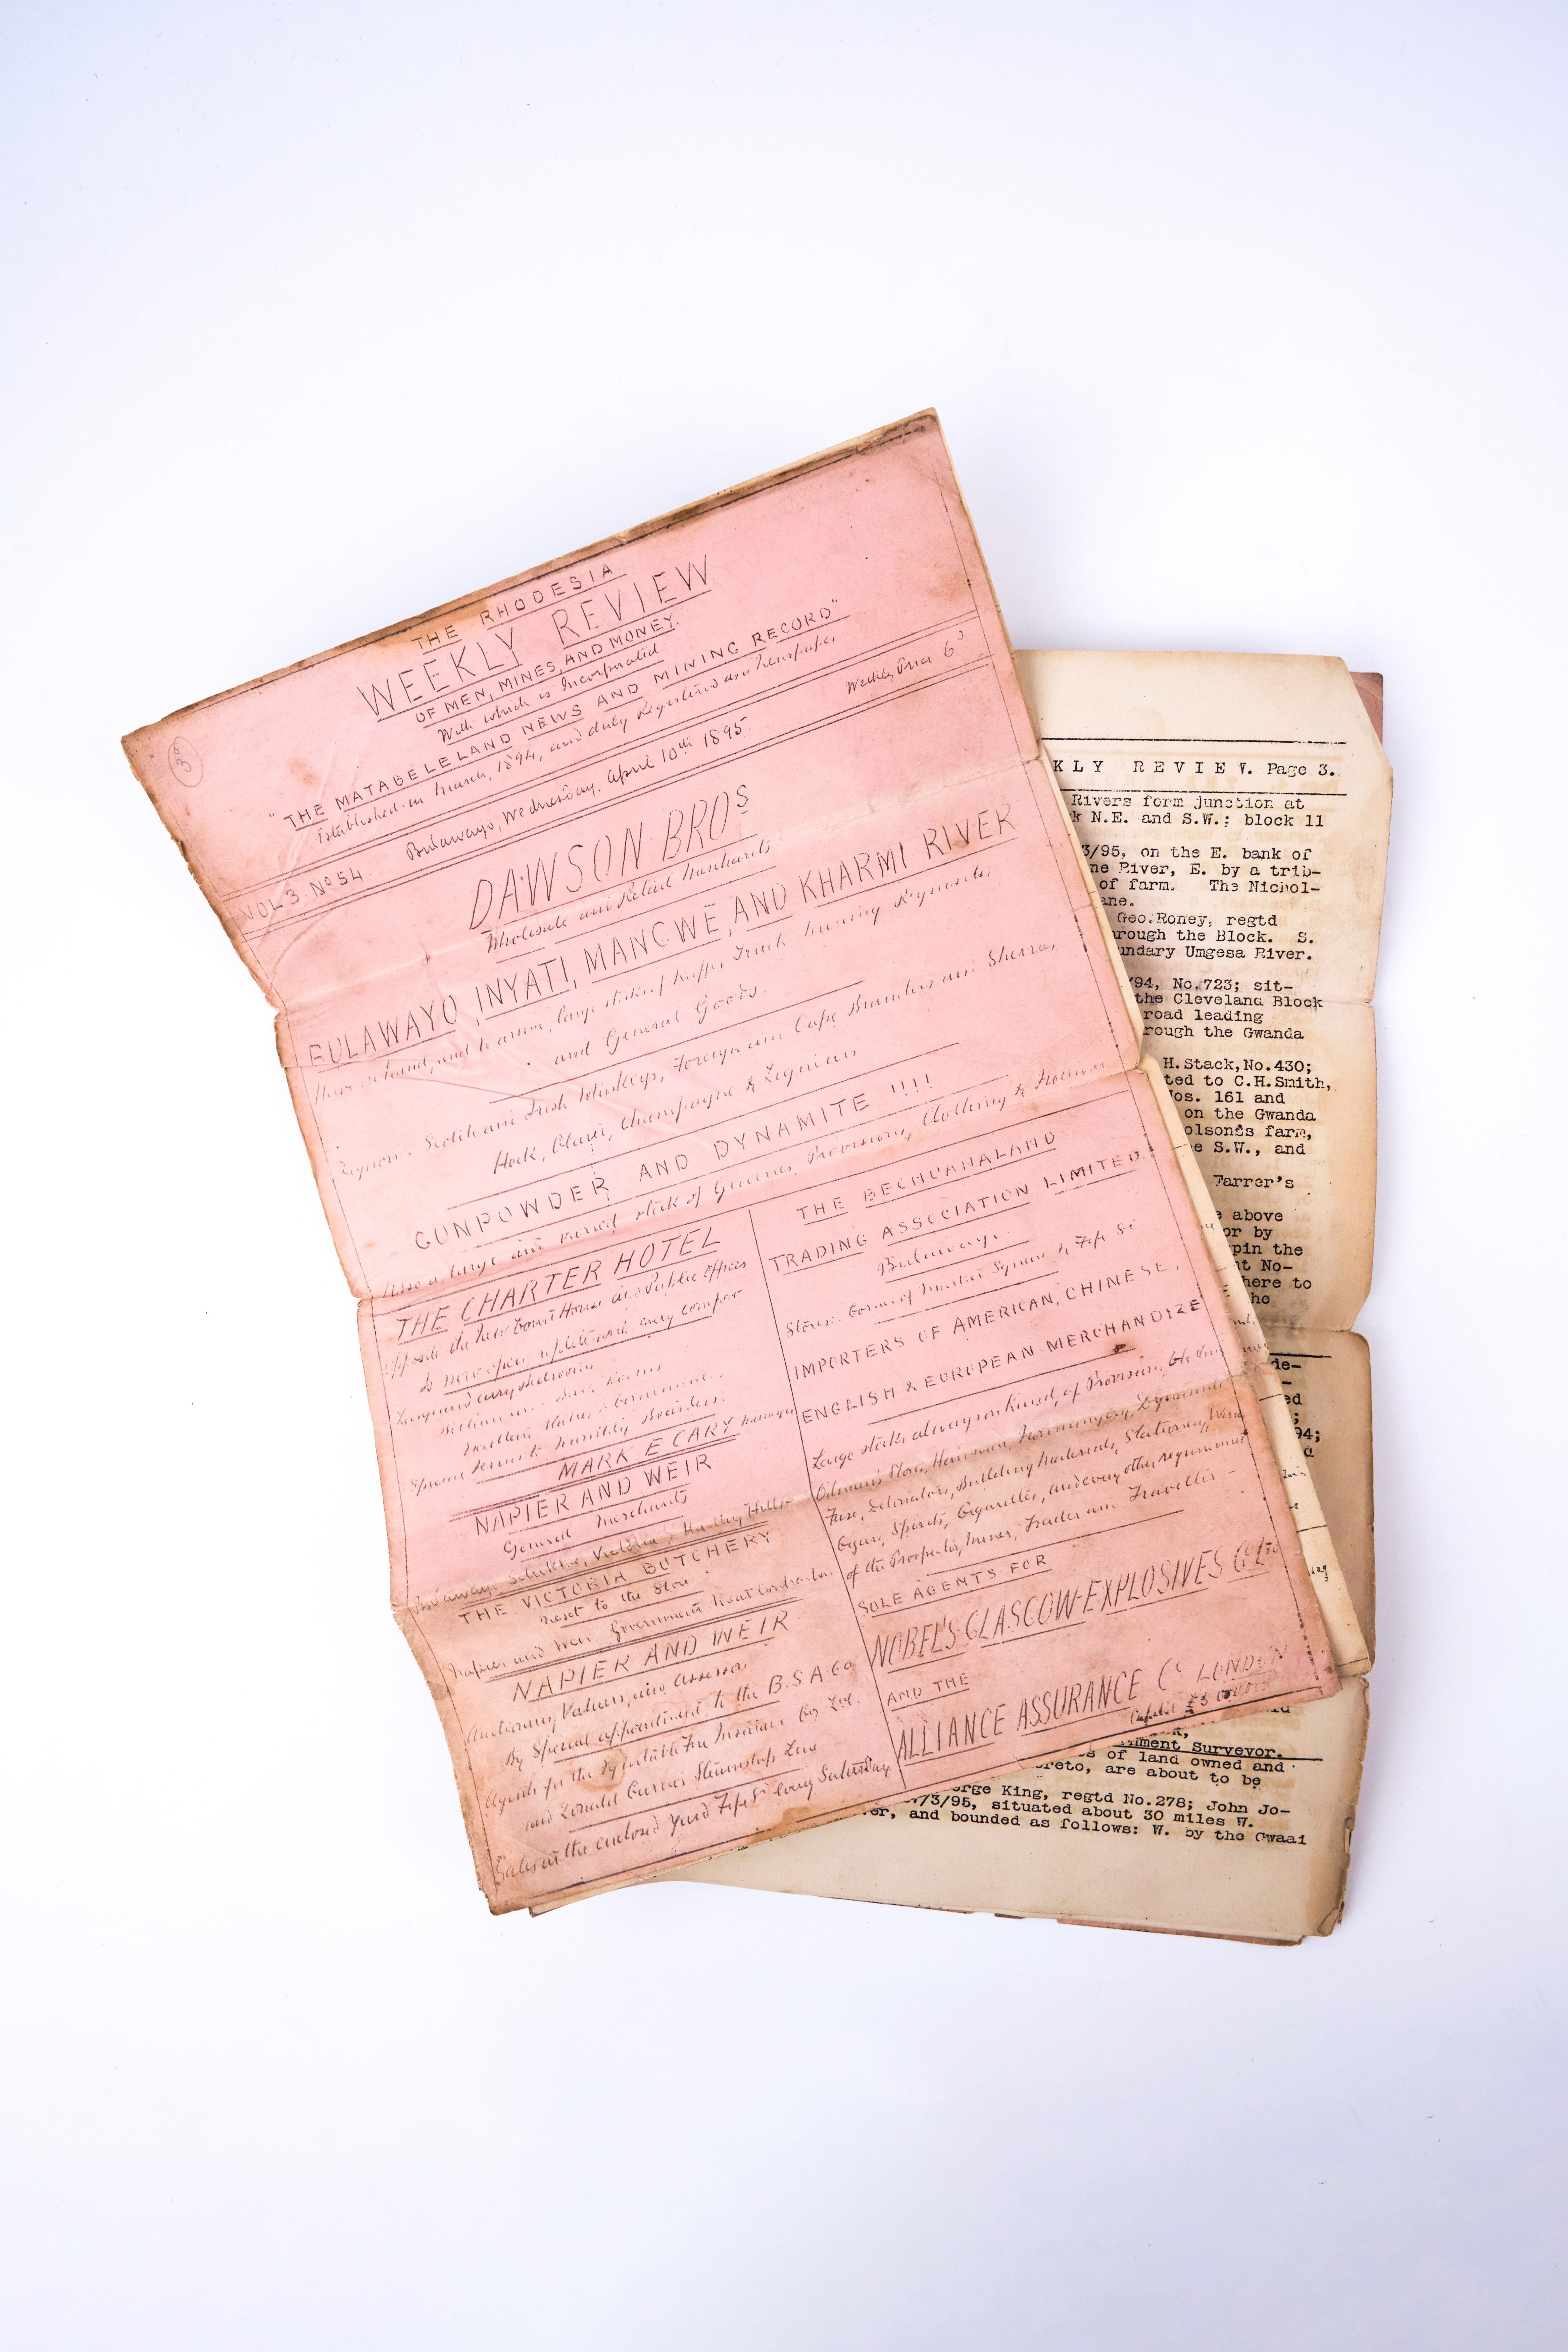 3a
THE RHODESIA
WEEKLY REVIEW
OF MEN, MINES, AND MONEY.
With which is Incorporated
"THE MATABELELAND NEWS AND MINING RECORD"
Established in March, 1894, and duly Registered as a Newspaper
VOL 3. No 54 Bulawayo, Wednesday, April 10th 1895. Weekly Price 6d
DAWSON BROS
Wholesale and Retail Merchants
BULAWAYO, INYATI, MANGWE, AND KHARMI RIVER
Have on hand, and to arrive, large stocks of Kaffir Truck Mining Requisites,
and General Goods.
Liquors. Scotch and Irish Whiskeys, Foreign and Cape Brandies and Sherries,
Hock, Claret, Champagne & Liqueurs
GUNPOWDER AND DYNAMITE !!!!
Also a large and varied stock of Groceries, Provisions, Clothing &
THE CHARTER HOTEL
Opposite the New Court House and Public Offices
Is now open, replete with every comfort
Large and airy Bedrooms
Billiard and
Excellent
Special Terms to Monthly Boarders.
MARK E CARY Manager
NAPIER AND WEIR
General Merchants
Bulawayo, Selukwe, Victoria & Hartley Hills
THE VICTORIA BUTCHERY
Next to the Store
Napier and Weir Government Meat Contractors
NAPIER AND WEIR
Auctioneers, Valuers, and Assessors
By Special appointment to the B.S.A. Co
Agents for the Equitable Fire Insurance Co Ltd.
and Donald Currie's Steamship Line
Sales in the enclosed Yard Fife St every Saturday
THE BECHUANALAND
TRADING ASSOCIATION LIMITED.
Bulawayo.
Stores: Corner of Market Square & Fife St
IMPORTERS OF AMERICAN, CHINESE,
ENGLISH & EUROPEAN MERCHANDIZE
Large stocks always on hand, of Provisions, Clothing
Oilman's Stores, Hardware, Ironmongery, Dynamite
Fuse, Detonators, Building Materials, Stationery, Wines
Cigars, Spirits, Cigarettes, and every other requirement
of the Prospector, Miner, Trader and Traveller
SOLE AGENTS FOR
NOBEL'S GLASGOW EXPLOSIVES Co Ltd
AND THE
ALLIANCE ASSURANCE Co LONDON
Capital £5
KLY REVIEW. Page 3.
Rivers form junction at
k N.E. and S.W.; block 11
3/95, on the E. bank of
ne River, E. by a trib-
of farm. The Nichol-
ane.
Geo.Roney, regtd
rough the Block. S.
undary Umgesa River.
/94, No.723; sit-
the Cleveland Block
road leading
rough the Gwanda
H.Stack,No.430;
ted to C.H.Smith,
Nos. 161 and
on the Gwanda
olson's farm,
e S.W., and
Farrer's
e above
or by
pin the
nt No-
here to
he
de-
ed
94;
nment Surveyor.
s of land owned and
reto, are about to be
orge King, regtd No.278; John Jo-
/3/95, situated about 30 miles W.
ver, and bounded as follows: W. by the Gwaai